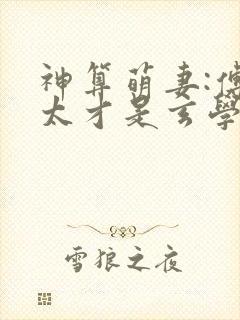 神算萌妻:傅
太才是玄學
雪狼之夜